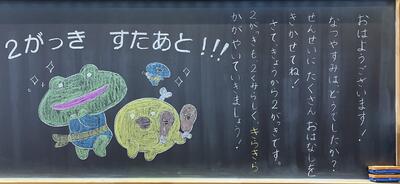 2がっき すたあと!!!
おはようございます!
なつやすみは、どうでしたか?
せんせいに たくさん おはなしを
きかせてね!
さて、きょうから2がっきです。
2がっきも、2くみらしく、きらきら
かがやいていきましょう!